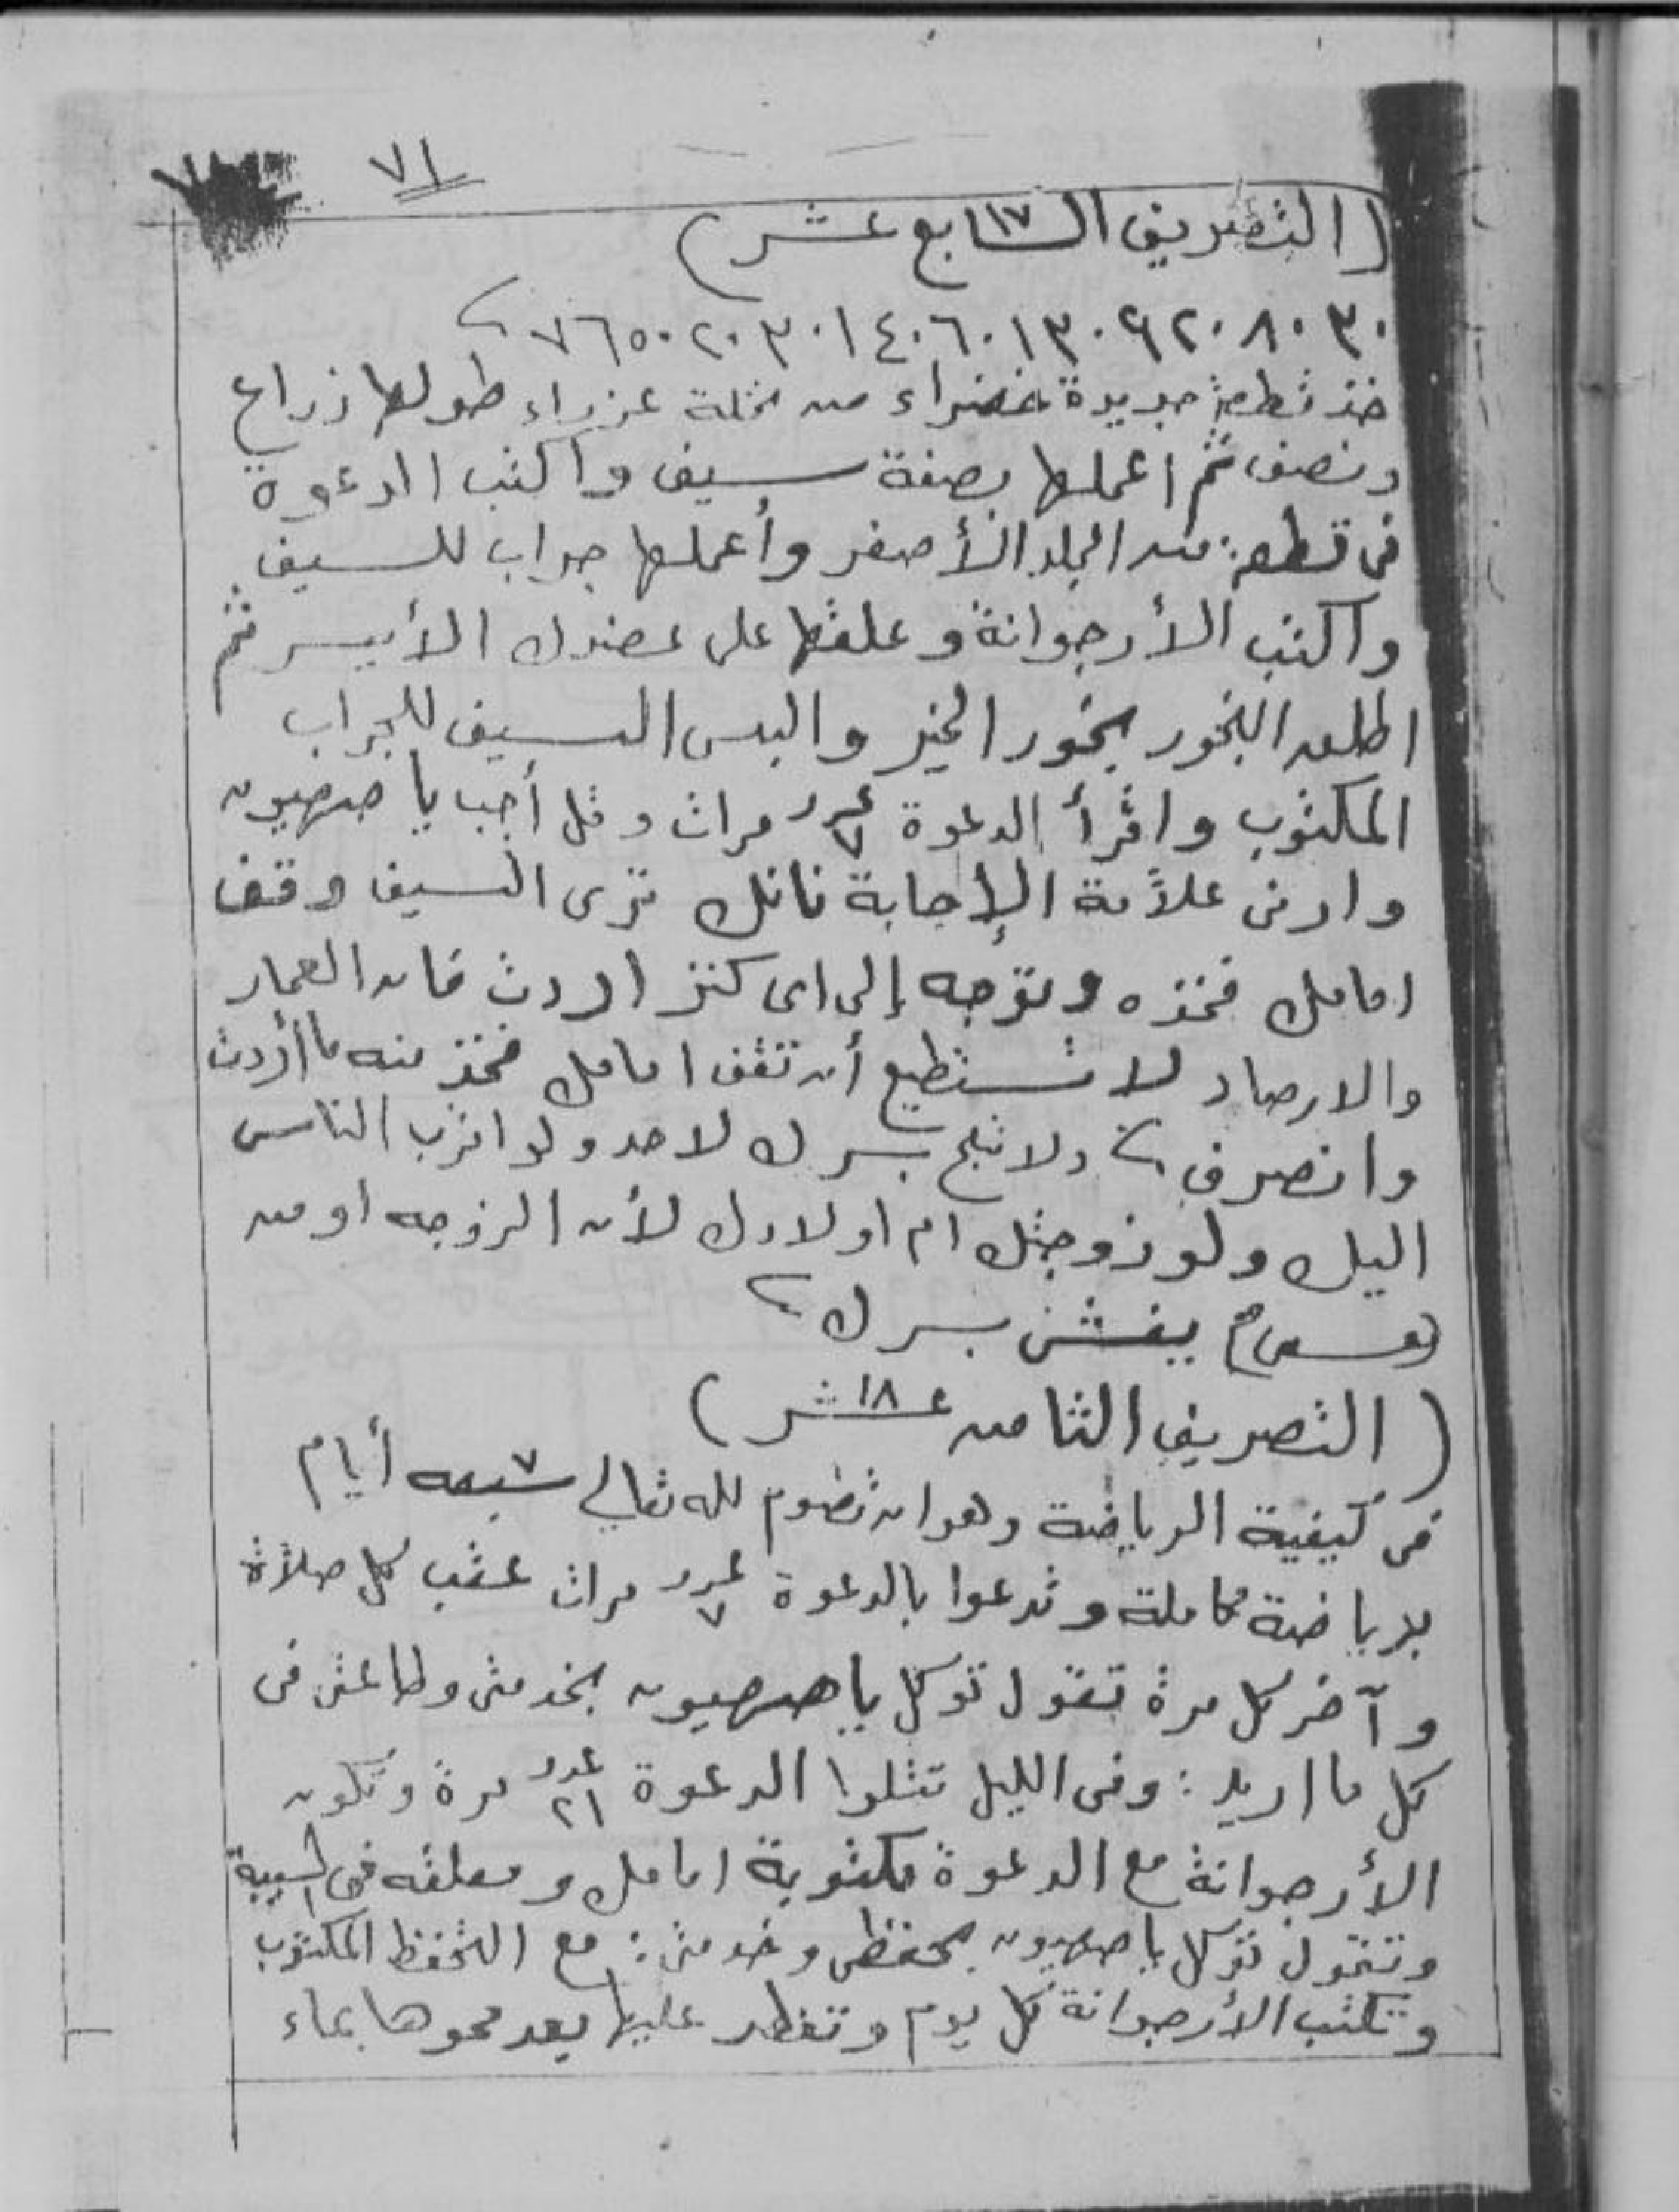 ٧١
(التصريف السابع١٧ عشر)
٣٠ ٨٠ ٩٢٠ ١٣٠ ٦٠ ١٤٠ ٣٠ ٢٠ ٧٦٥٠
خذ قطعة جريدة خضراء من نخلة عزراء طولها زراع
ونصف ثم اعملها بصفة سيف واكتب الدعوة
فى قطعة من الجلد الأصفر وأعملها جراب للسيف
واكتب الأرجوانة وعلقها على عضدك الأيسر ثم
اطلق البخور بخور الخير والبس السيف للجراب
المكتوب واقرأ الدعوة عدد ٧ مرات وقل أجب يا صهيون
وارنى علاًمة الإجابة فانك ترى السيف وقف
امامك فخذه وتوجه إلى اى كنز اردت فان العمار
والارصاد لا تستطيع أن تقف امامك فخذ منه ما أردت
وانصرف ولا تبح بسرك لاحد ولو اقرب الناس
اليك ولو زوجتك ام اولادك لأن الزوجه او من
يفشى سرك
(التصريف الثامن عشر ١٨)
فى كيفية الرياضة وهو ان تصوم لله تعالى سبعه ٧ أيام
برياضة كاملة وتدعوا بالدعوة عدد ٧ مرات عقب كل صلاة
وآخر كل مرة تقول توكل يا صهيون بخدمتى وطاعتى فى
كل ما اريد : وفى الليل تتلوا الدعوة عدد ٢١ مرة وتكون
الأرجوانة مع الدعوة مكتوبة امامك ومعلقه فى السيبة
وتقول توكل يا صهيون بحفظى وخدمتى : مع التحفظ المكتوب
وتكتب الأرجوانة كل يوم وتفطر عليها بعد محوها بماء